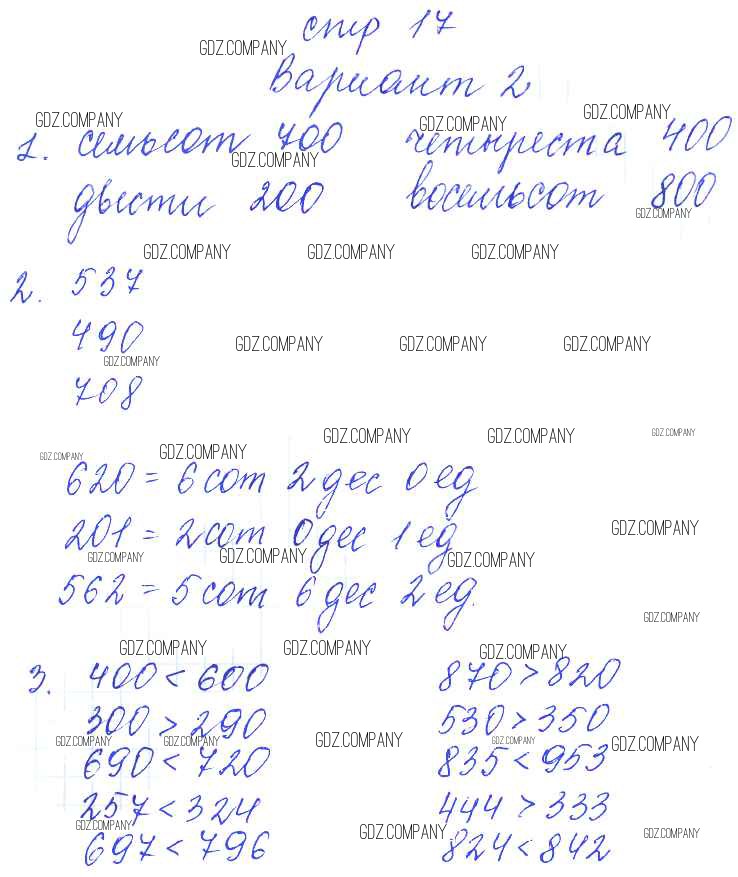 стр 17
GDZ.COMPANY
Вариант 2
GDZ.COMPANY GDZ.COMPANY GDZ.COMPANY
1. семьсот 700 четыреста 400
GDZ.COMPANY
двести 200 восемьсот 800
GDZ.COMPANY
GDZ.COMPANY GDZ.COMPANY GDZ.COMPANY
2. 537
490
GDZ.COMPANY GDZ.COMPANY GDZ.COMPANY
GDZ.COMPANY
708
GDZ.COMPANY GDZ.COMPANY GDZ.COMPANY
GDZ.COMPANY GDZ.COMPANY
620 = 6 сот 2 дес 0 ед
201 = 2 сот 0 дес 1 ед
GDZ.COMPANY
GDZ.COMPANY GDZ.COMPANY GDZ.COMPANY
562 = 5 сот 6 дес 2 ед.
GDZ.COMPANY
GDZ.COMPANY GDZ.COMPANY GDZ.COMPANY
3. 400 < 600 870 > 820
300 > 290 530 > 350
GDZ.COMPANY GDZ.COMPANY GDZ.COMPANY GDZ.COMPANY GDZ.COMPANY
690 < 720 835 < 953
257 < 324 444 > 333
GDZ.COMPANY GDZ.COMPANY GDZ.COMPANY
697 < 796 824 < 842